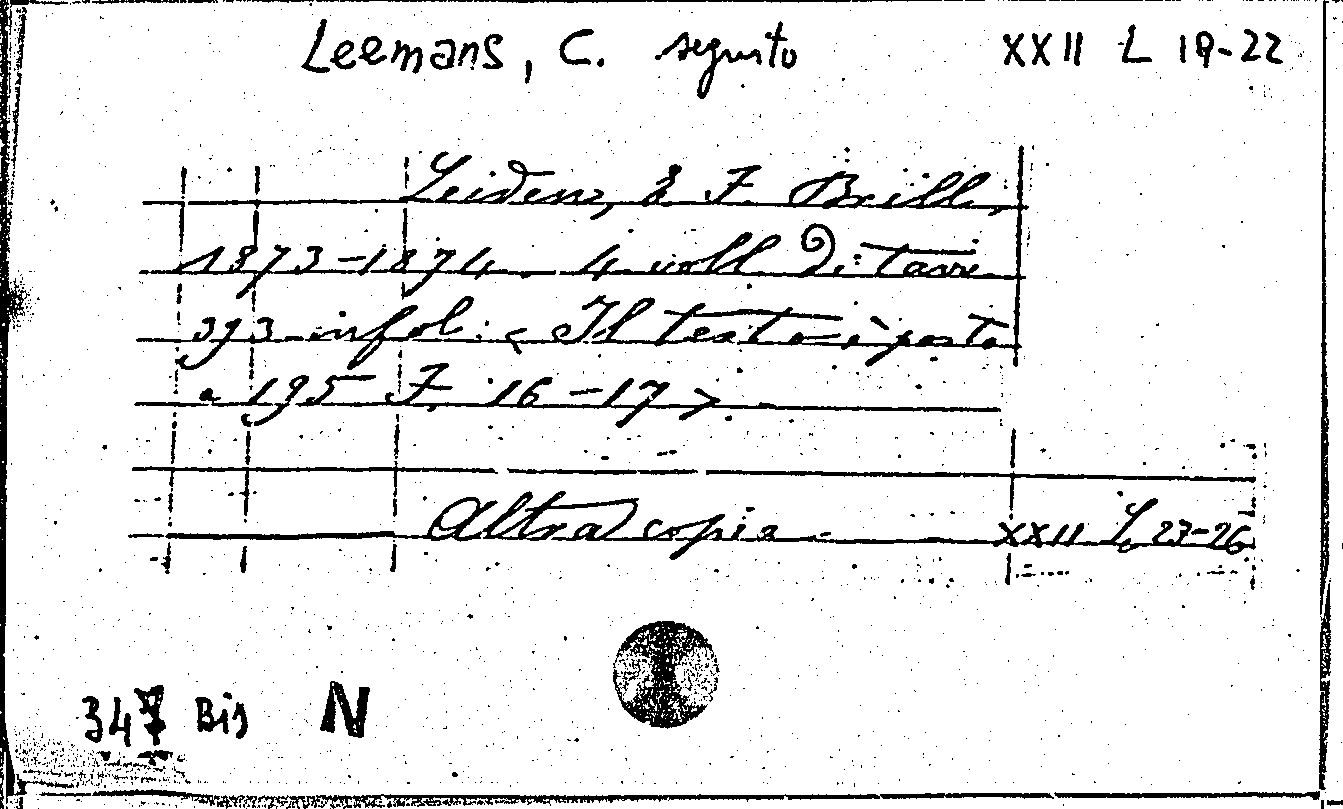 Leemans, C. seguito XXII L 19-22
Leiden, E. J. Brill,
1873-1874. 4 voll. di tavv.
393 in fol. < Il testo è posto
a 195 F. 16-17 >
Altra copia. XXII L. 23-26
Bis N